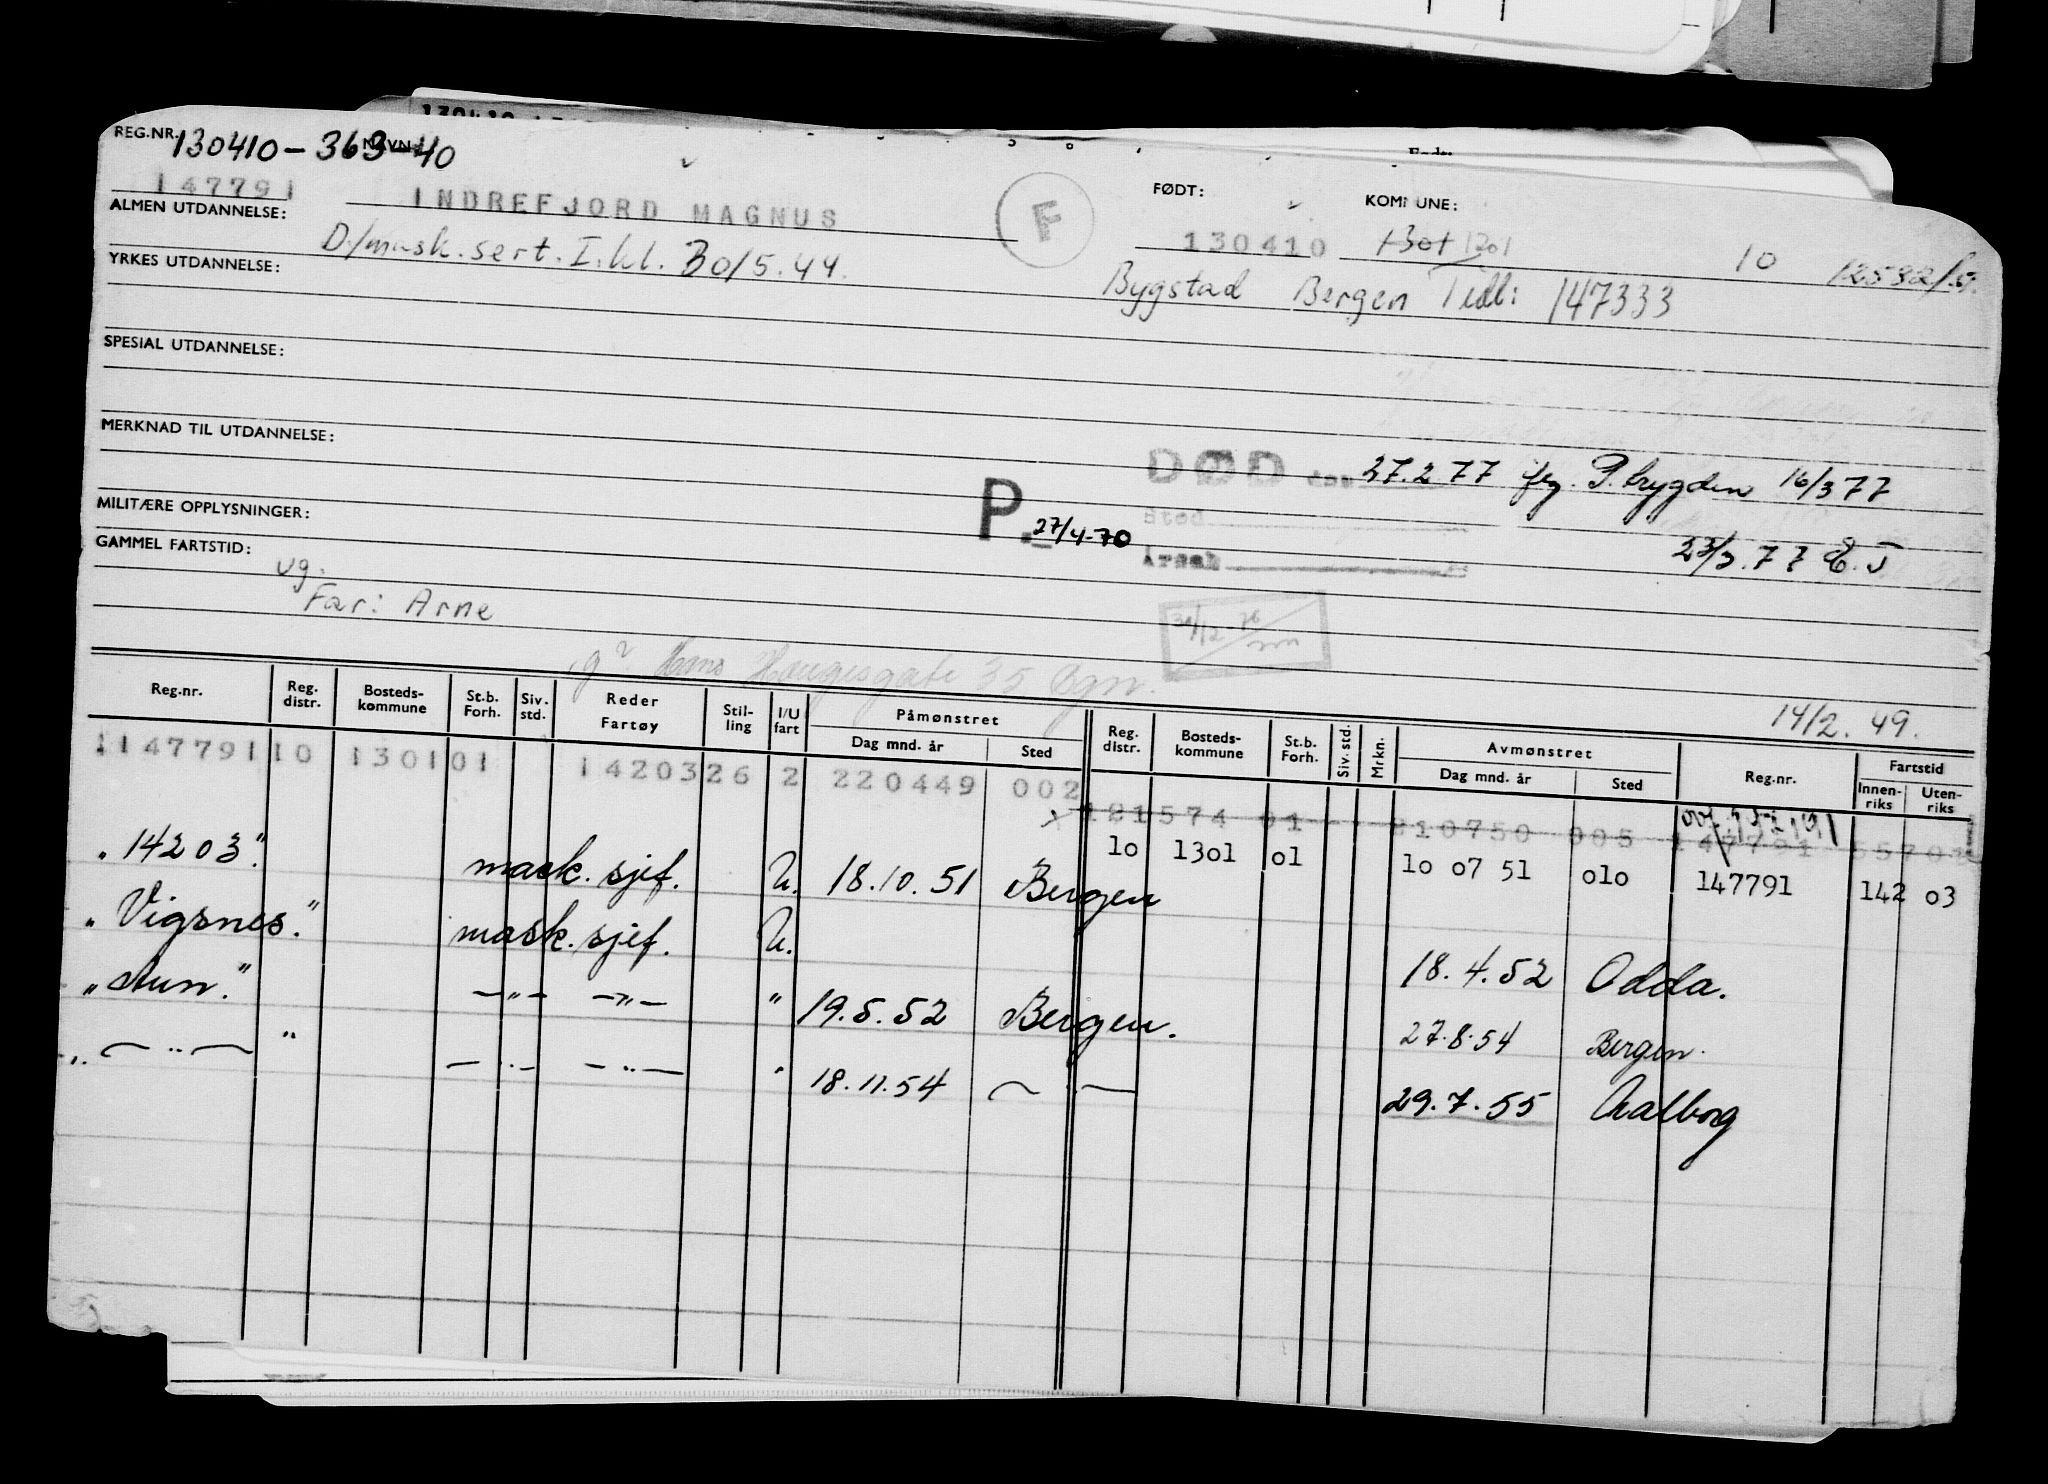 130410
REG.NR. 130410-363-40 NAVN:
147791 INDREFJORD MAGNUS F FØDT: 130410 KOMMUNE: 1301 1201 10 12532/
ALMEN UTDANNELSE: D/mask.sert. I.kl. 30/5.44. Bygstad Bergen Tidl: 147333
YRKES UTDANNELSE:
SPESIAL UTDANNELSE:
MERKNAD TIL UTDANNELSE:
DØD den 27.2 77 flg. P.trygden 16/3 77
MILITÆRE OPPLYSNINGER: P. 27/4-70 Sted
23/3.77 E.J
GAMMEL FARTSTID: Årsak
ug.
Far: Arne
Hauges gate 35 Bgn.
14/2.49.
Reg.nr. Reg. distr. Bosteds- kommune St.b. Forh. Siv. std. Reder Fartøy Stil- ling I/U fart Påmønstret Dag mnd. år Sted Reg. distr. Bosteds- kommune St.b. Forh. Siv. std. Mrkn. Avmønstret Dag mnd. år Sted Reg.nr. Fartstid Innen- riks Uten- riks
114779110 130101 1420326 2 220449 002
121574 01 210750 005 147791 55702
10 1301 01 10 07 51 010 147791 142 03
"14203." mask. sjef. U. 18.10.51 Bergen
"Vigsnes." mask. sjef. U. 18.4.52 Odda.
"Aun." —"— —"— " 19.5.52 Bergen. 27.8.54 Bergen.
" —"— " —"— —"— " 18.11.54 —"— 29.7.55 Aalborg